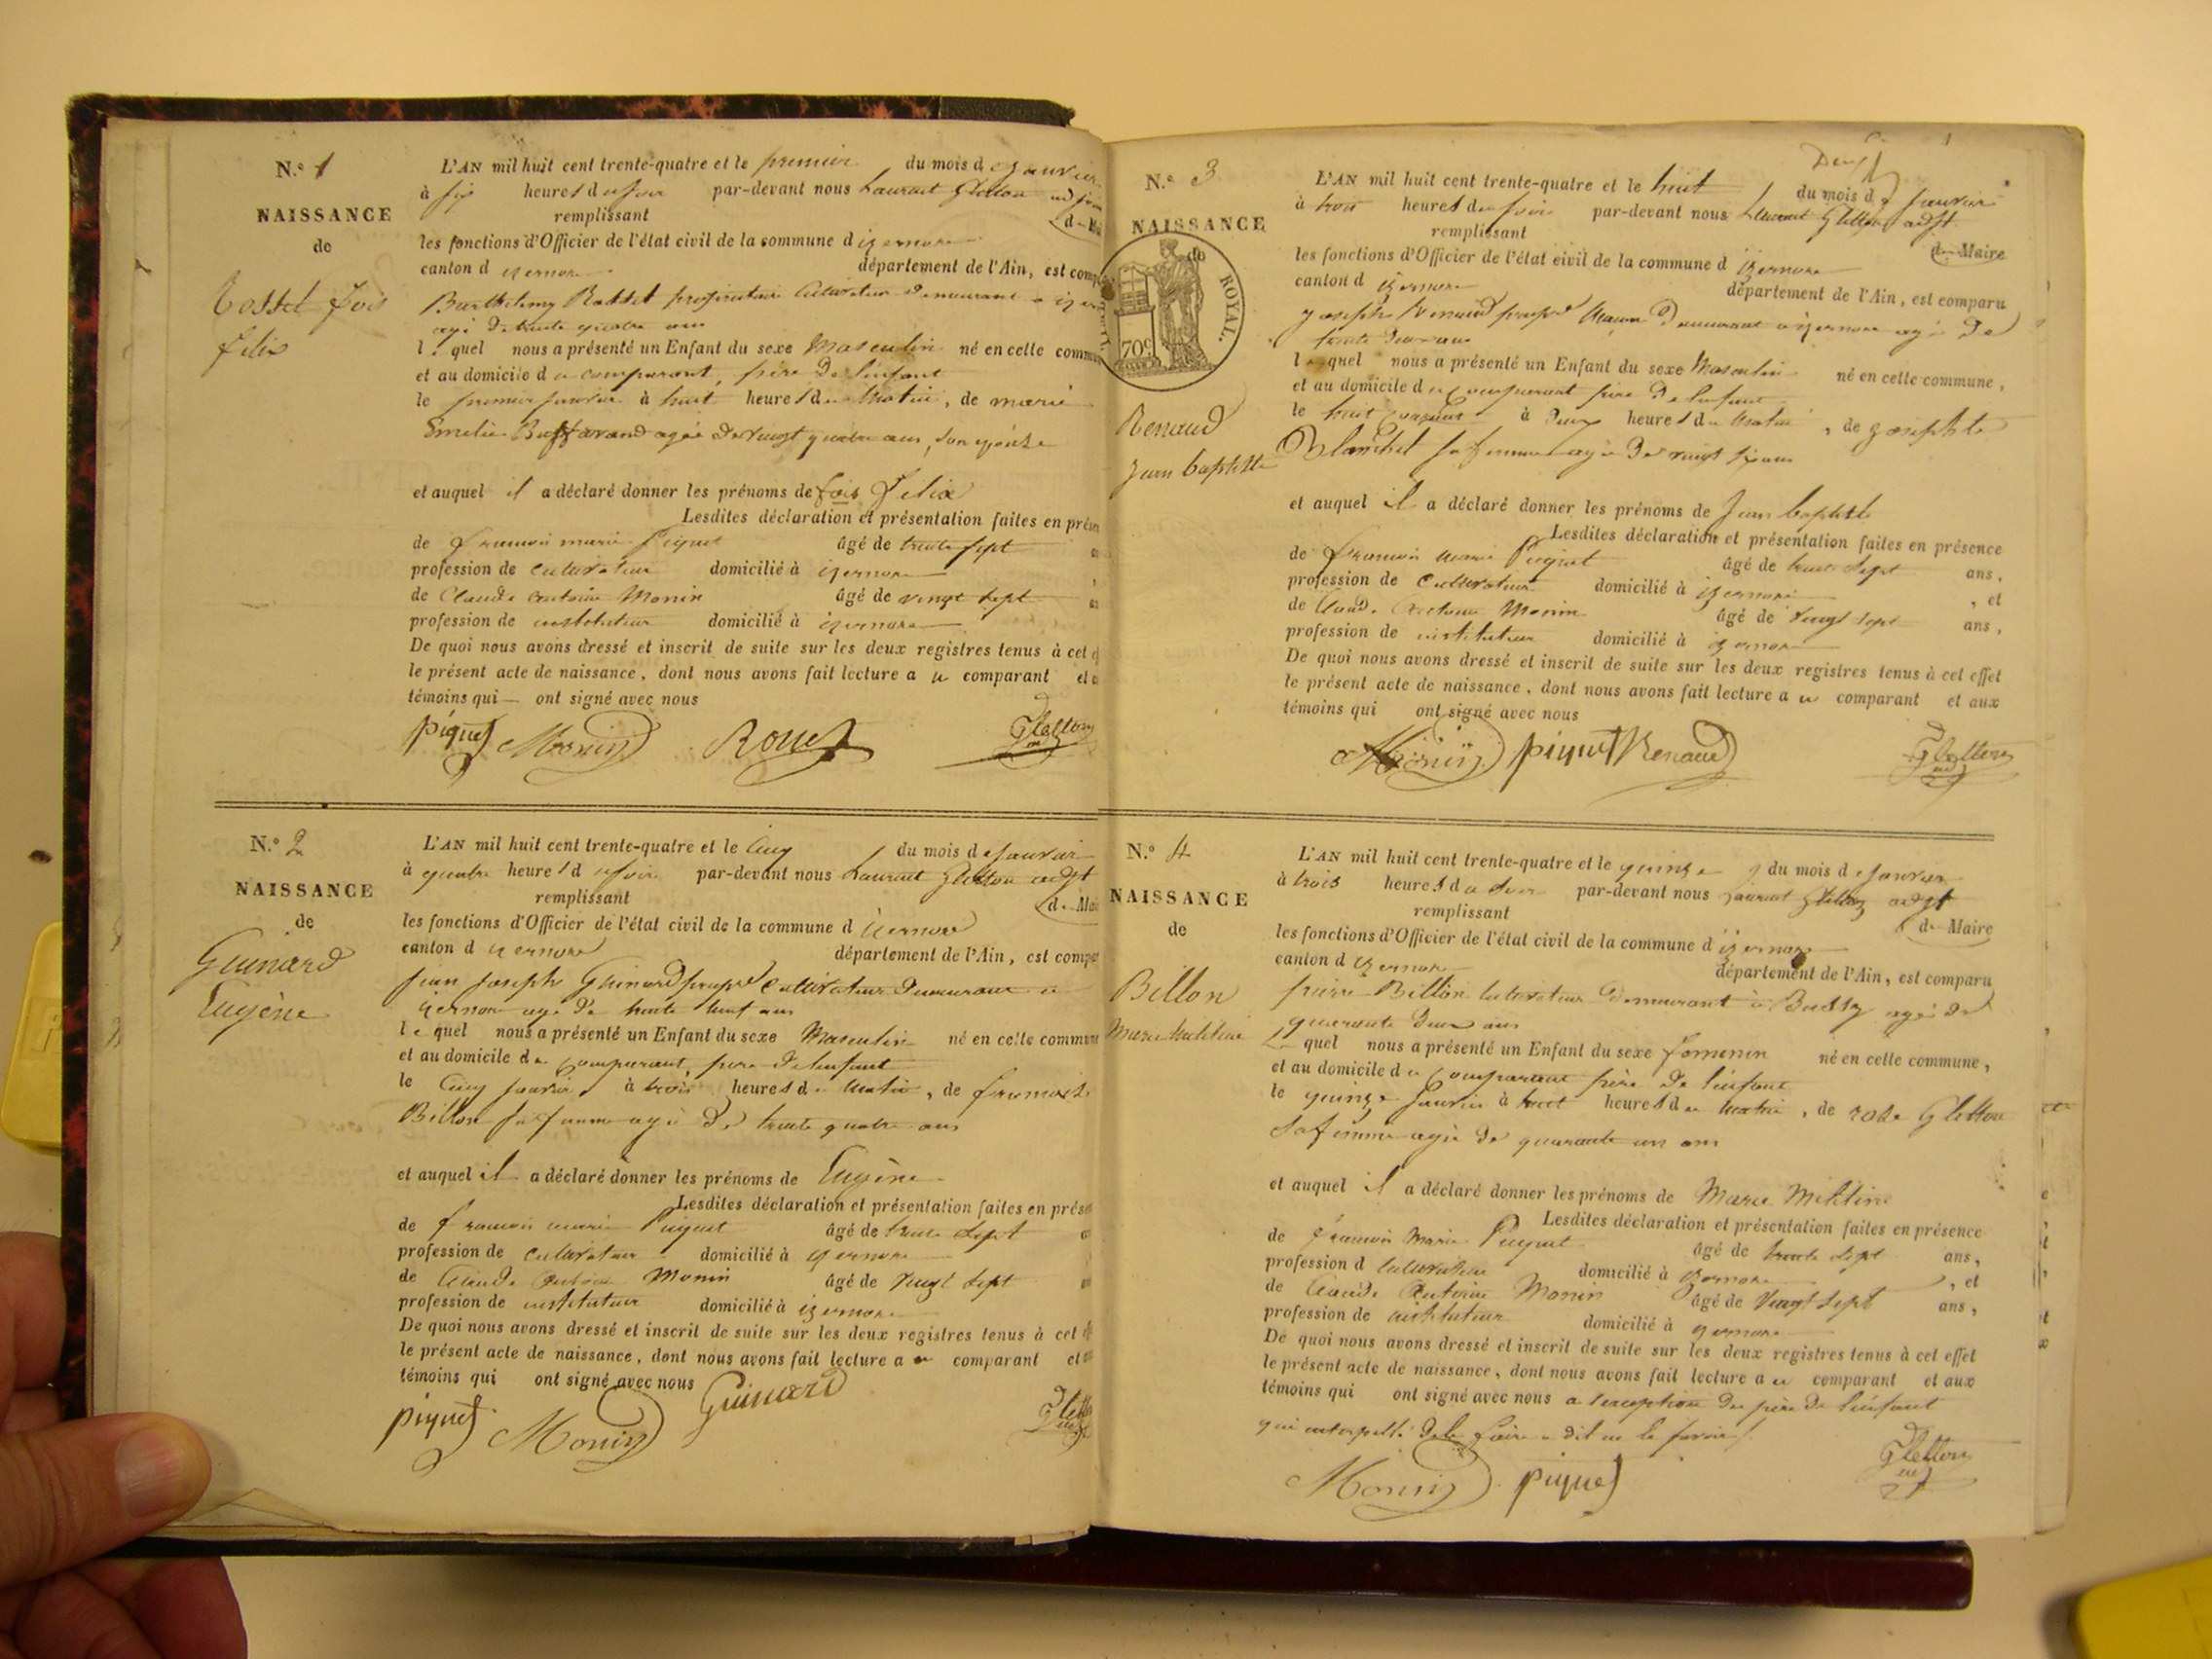 N.° 1
NAISSANCE
de
felix
L'AN mil huit cent trente-quatre et le premier du mois de janvier
à six heures du soir par-devant nous Laurent Gletton
remplissant
les fonctions d'Officier de l'état civil de la commune d izernore
canton d izernore département de l'Ain, est comp
Barthelemy proprietaire Cultivateur demeurant a
agé de trente quatre ans
lequel nous a présenté un Enfant du sexe Masculin né en cette commu
et au domicile du comparant, père de l'enfant
le premier janvier à huit heures du Matin, de marie
Emelie Buffavand agée de vingt quatre ans, son épouse
et auquel il a déclaré donner les prénoms de fois felix
Lesdites déclaration et présentation faites en prés
de francois marie piquet âgé de trente sept
profession de cultivateur domicilié à izernore
de Claude antoine Monin âgé de vingt sept
profession de instituteur domicilié à izernore
De quoi nous avons dressé et inscrit de suite sur les deux registres tenus à cet
le présent acte de naissance, dont nous avons fait lecture au comparant et
témoins qui ont signé avec nous
piquet Monin Gletton
N.° 2
NAISSANCE
de
Guinard
Eugène
L'AN mil huit cent trente-quatre et le cinq du mois de janvier
à quatre heures du soir par-devant nous Laurent Gletton adjt
remplissant
de Mai
les fonctions d'Officier de l'état civil de la commune d izernore
canton d izernore département de l'Ain, est compa
jean joseph Guinard propre Cultivateur demeurant a
izernore agé de trente neuf ans
lequel nous a présenté un Enfant du sexe Masculin né en cette commune
et au domicile du comparant, père de l'enfant
le cinq janvier à trois heures du Matin, de francoise
Billon sa femme agé de trente quatre ans
et auquel il a déclaré donner les prénoms de Eugène
Lesdites déclaration et présentation faites en prés
de francois marie Piquet âgé de trente sept
profession de cultivateur domicilié à izernore
de Claude Antoine Monin âgé de vingt sept
profession de instituteur domicilié à izernore
De quoi nous avons dressé et inscrit de suite sur les deux registres tenus à cet
le présent acte de naissance, dont nous avons fait lecture au comparant et
témoins qui ont signé avec nous Guinard
piquet Monin
N.° 3
NAISSANCE
de
ROYAL.
70c
Renaud
Jean baptiste
L'AN mil huit cent trente-quatre et le huit du mois de janvier
à trois heures du soir par-devant nous Laurent Gletton adjt
remplissant
de Maire
les fonctions d'Officier de l'état civil de la commune d izernore
canton d izernore département de l'Ain, est comparu
joseph Renaud propre demeurant a izernore agé de
trente deux ans
lequel nous a présenté un Enfant du sexe Masculin né en cette commune,
et au domicile du comparant père de l'enfant
le huit courant à deux heures du Matin, de josephte
Blanchet sa femme agée de vingt six ans
et auquel il a déclaré donner les prénoms de Jean baptiste
Lesdites déclaration et présentation faites en présence
de francois marie Piquet âgé de trente sept ans,
profession de cultivateur domicilié à izernore, et
de Claude Antoine Monin âgé de vingt sept ans,
profession de instituteur domicilié à izernore
De quoi nous avons dressé et inscrit de suite sur les deux registres tenus à cet effet
le présent acte de naissance, dont nous avons fait lecture au comparant et aux
témoins qui ont signé avec nous
Monin piquet Renaud Gletton
N.° 4
NAISSANCE
de
Billon
L'AN mil huit cent trente-quatre et le quinze du mois de janvier
à trois heures du soir par-devant nous Laurent Gletton adjt
remplissant
de Maire
les fonctions d'Officier de l'état civil de la commune d izernore
canton d izernore département de l'Ain, est comparu
pierre Billon cultivateur demeurant à Bussy agé de
quarante deux ans
Lequel nous a présenté un Enfant du sexe femenin né en cette commune,
et au domicile du comparant père de l'enfant
le quinze janvier à huit heures du matin, de rose Gletton
sa femme agée de quarante un ans
et auquel il a déclaré donner les prénoms de Marie
Lesdites déclaration et présentation faites en présence
de francois Marie Piquet âgé de trente sept ans,
profession d cultivateur domicilié à izernore, et
de Claude Antoine Monin âgé de vingt sept ans,
profession de instituteur domicilié à izernore
De quoi nous avons dressé et inscrit de suite sur les deux registres tenus à cet effet
le présent acte de naissance, dont nous avons fait lecture au comparant et aux
témoins qui ont signé avec nous a l'exception du père de l'enfant
qui interpellé de le faire a dit ne le savoir
Monin piquet Gletton